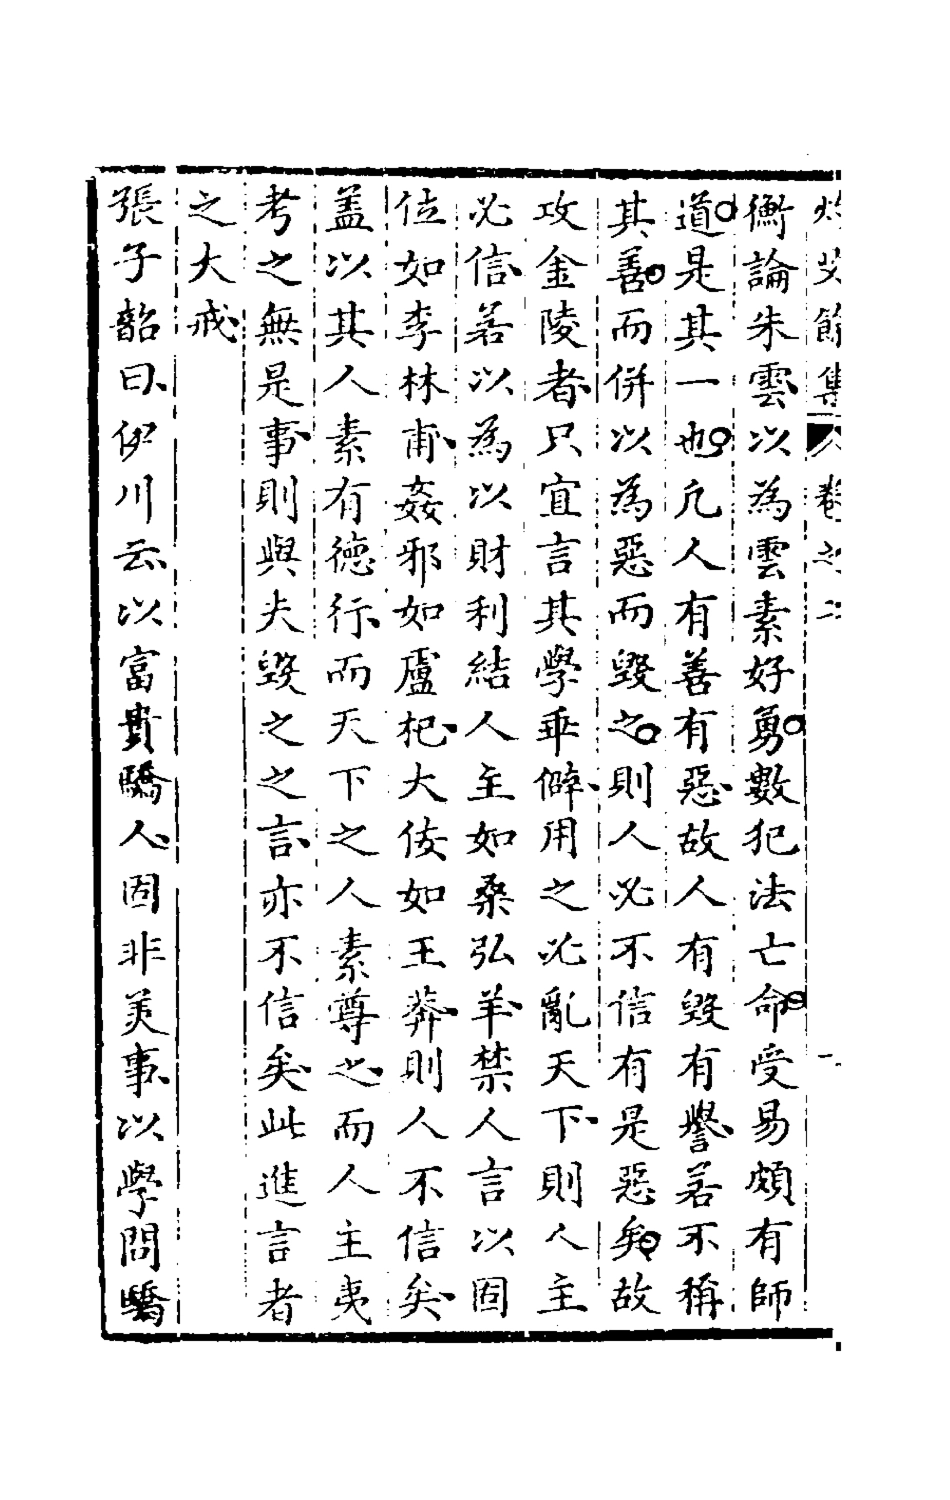 灼艾餘集 卷之二
衡論朱雲以為雲素好勇數犯法亡命受易頗有師
道是其一也凡人有善有惡故人有毀有譽若不稱
其善而併以為惡而毀之則人必不信有是惡矣故
攻金陵者只宜言其學乖僻用之必亂天下則人主
必信若以為以財利結人主如桑弘羊禁人言以固
位如李林甫姦邪如盧杞大佞如王莽則人不信矣
盖以其人素有德行而天下之人素尊之而人主夷
考之無是事則與夫毀之之言亦不信矣此進言者
之大戒
張子韶曰伊川云以富貴驕人固非美事以學問驕